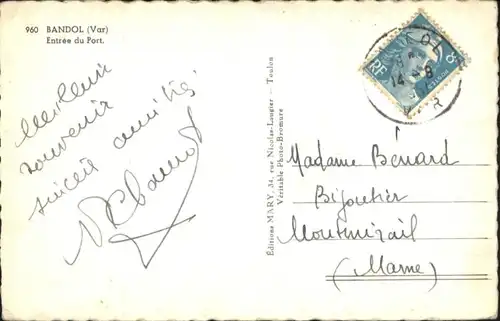 960 BANDOL (Var)
Entrée du Port.
Meilleur
souvenir
sincère amitié
Éditions MARY, 34, rue Nicolas-Laugier - Toulon
Véritable Photo-Bromure
RF
14 - 8
Madame Bénard
Bijoutier
Montmirail
(Marne)